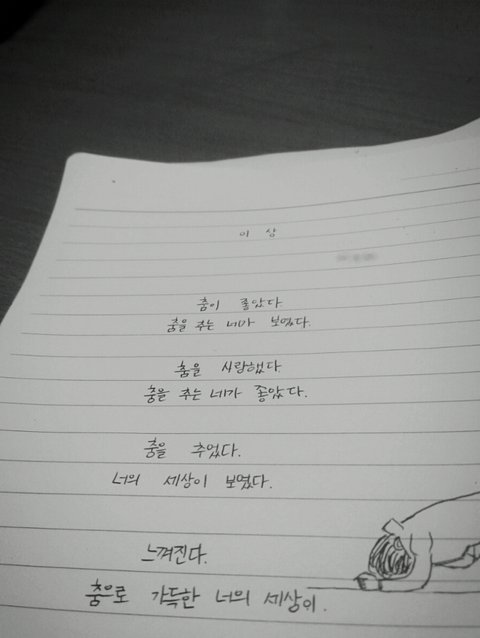 이 상
춤이 좋았다
춤을 추는 네가 보였다.
춤을 사랑했다
춤을 추는 네가 좋았다.
춤을 추었다.
너의 세상이 보였다.
느껴진다.
춤으로 가득한 너의 세상이.